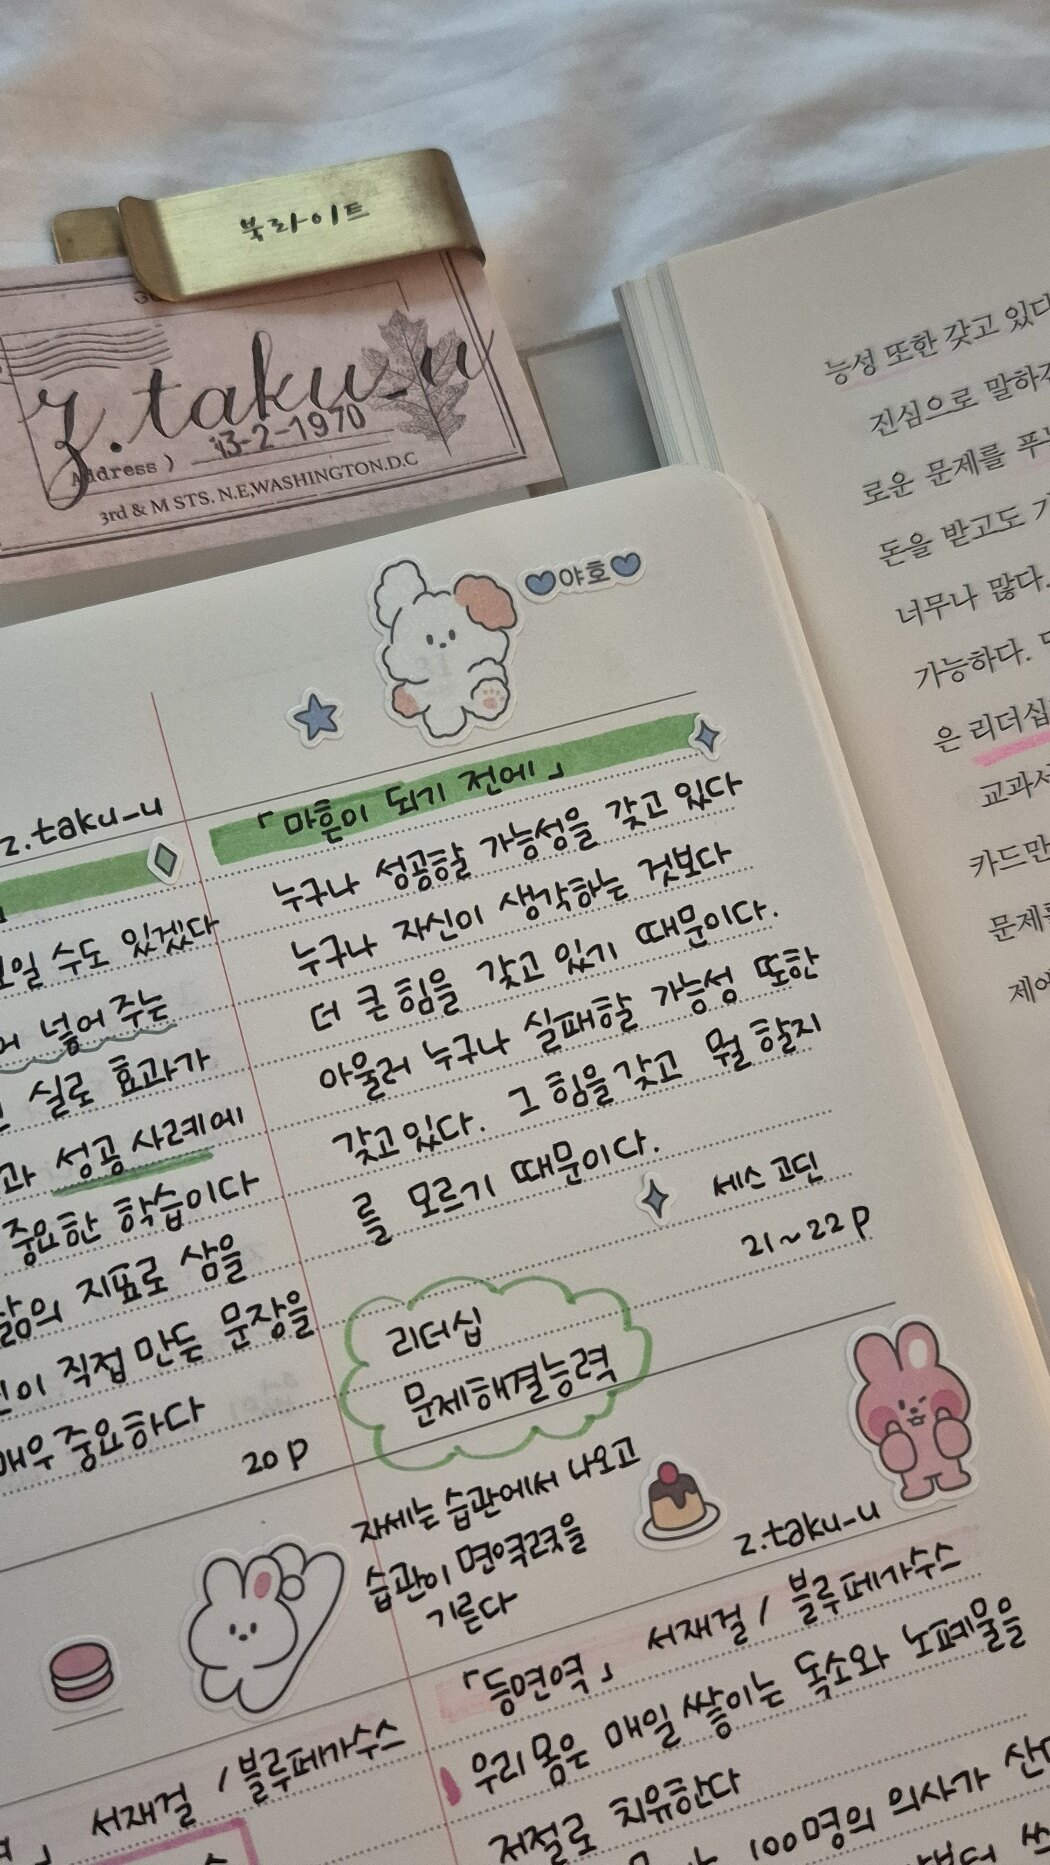 북라이트
z.taku_u
13-2-1970
Address )
3rd & M STS. N.E,WASHINGTON.D.C
능성 또한 갖고 있다
진심으로 말하
로운 문제를 푸
돈을 받고도
너무나 많다.
가능하다.
은 리더십
교과서
카드만
문제
제
야호
z.taku_u
일 수도 있겠다
넣어 주는
실로 효과가
과 성공 사례에
중요한 학습이다
삶의 지표로 삼을
이 직접 만든 문장을
매우 중요하다
20p
「마흔이 되기 전에」
누구나 성공할 가능성을 갖고 있다
누구나 자신이 생각하는 것보다
더 큰 힘을 갖고 있기 때문이다.
아울러 누구나 실패할 가능성 또한
갖고 있다. 그 힘을 갖고 뭘 할지
를 모르기 때문이다.
세스 고딘
21~22p
리더십
문제해결능력
자세는 습관에서 나오고
습관이 면역력을
기른다
z.taku_u
「등면역」 서재걸 / 블루페가수스
우리 몸은 매일 쌓이는 독소와 노폐물을
저절로 치유한다
100명의 의사가
」 서재걸 / 블루페가수스